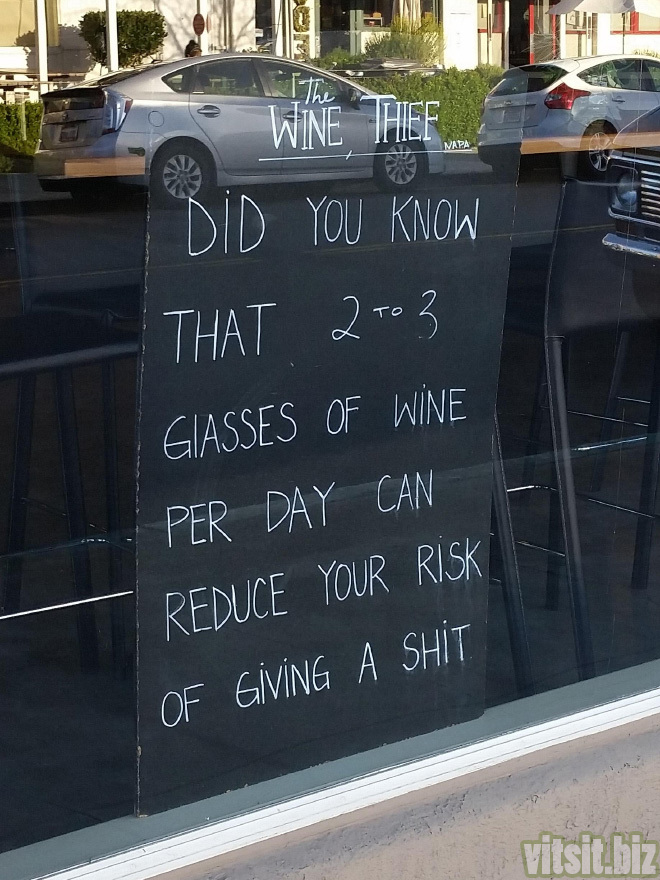 The
WINE THIEF
NAPA
DiD YOU KNOW
THAT 2 TO 3
GLASSES OF WiNE
PER DAY CAN
REDUCE YOUR RiSK
OF GiViNG A SHiT
vitsit.biz